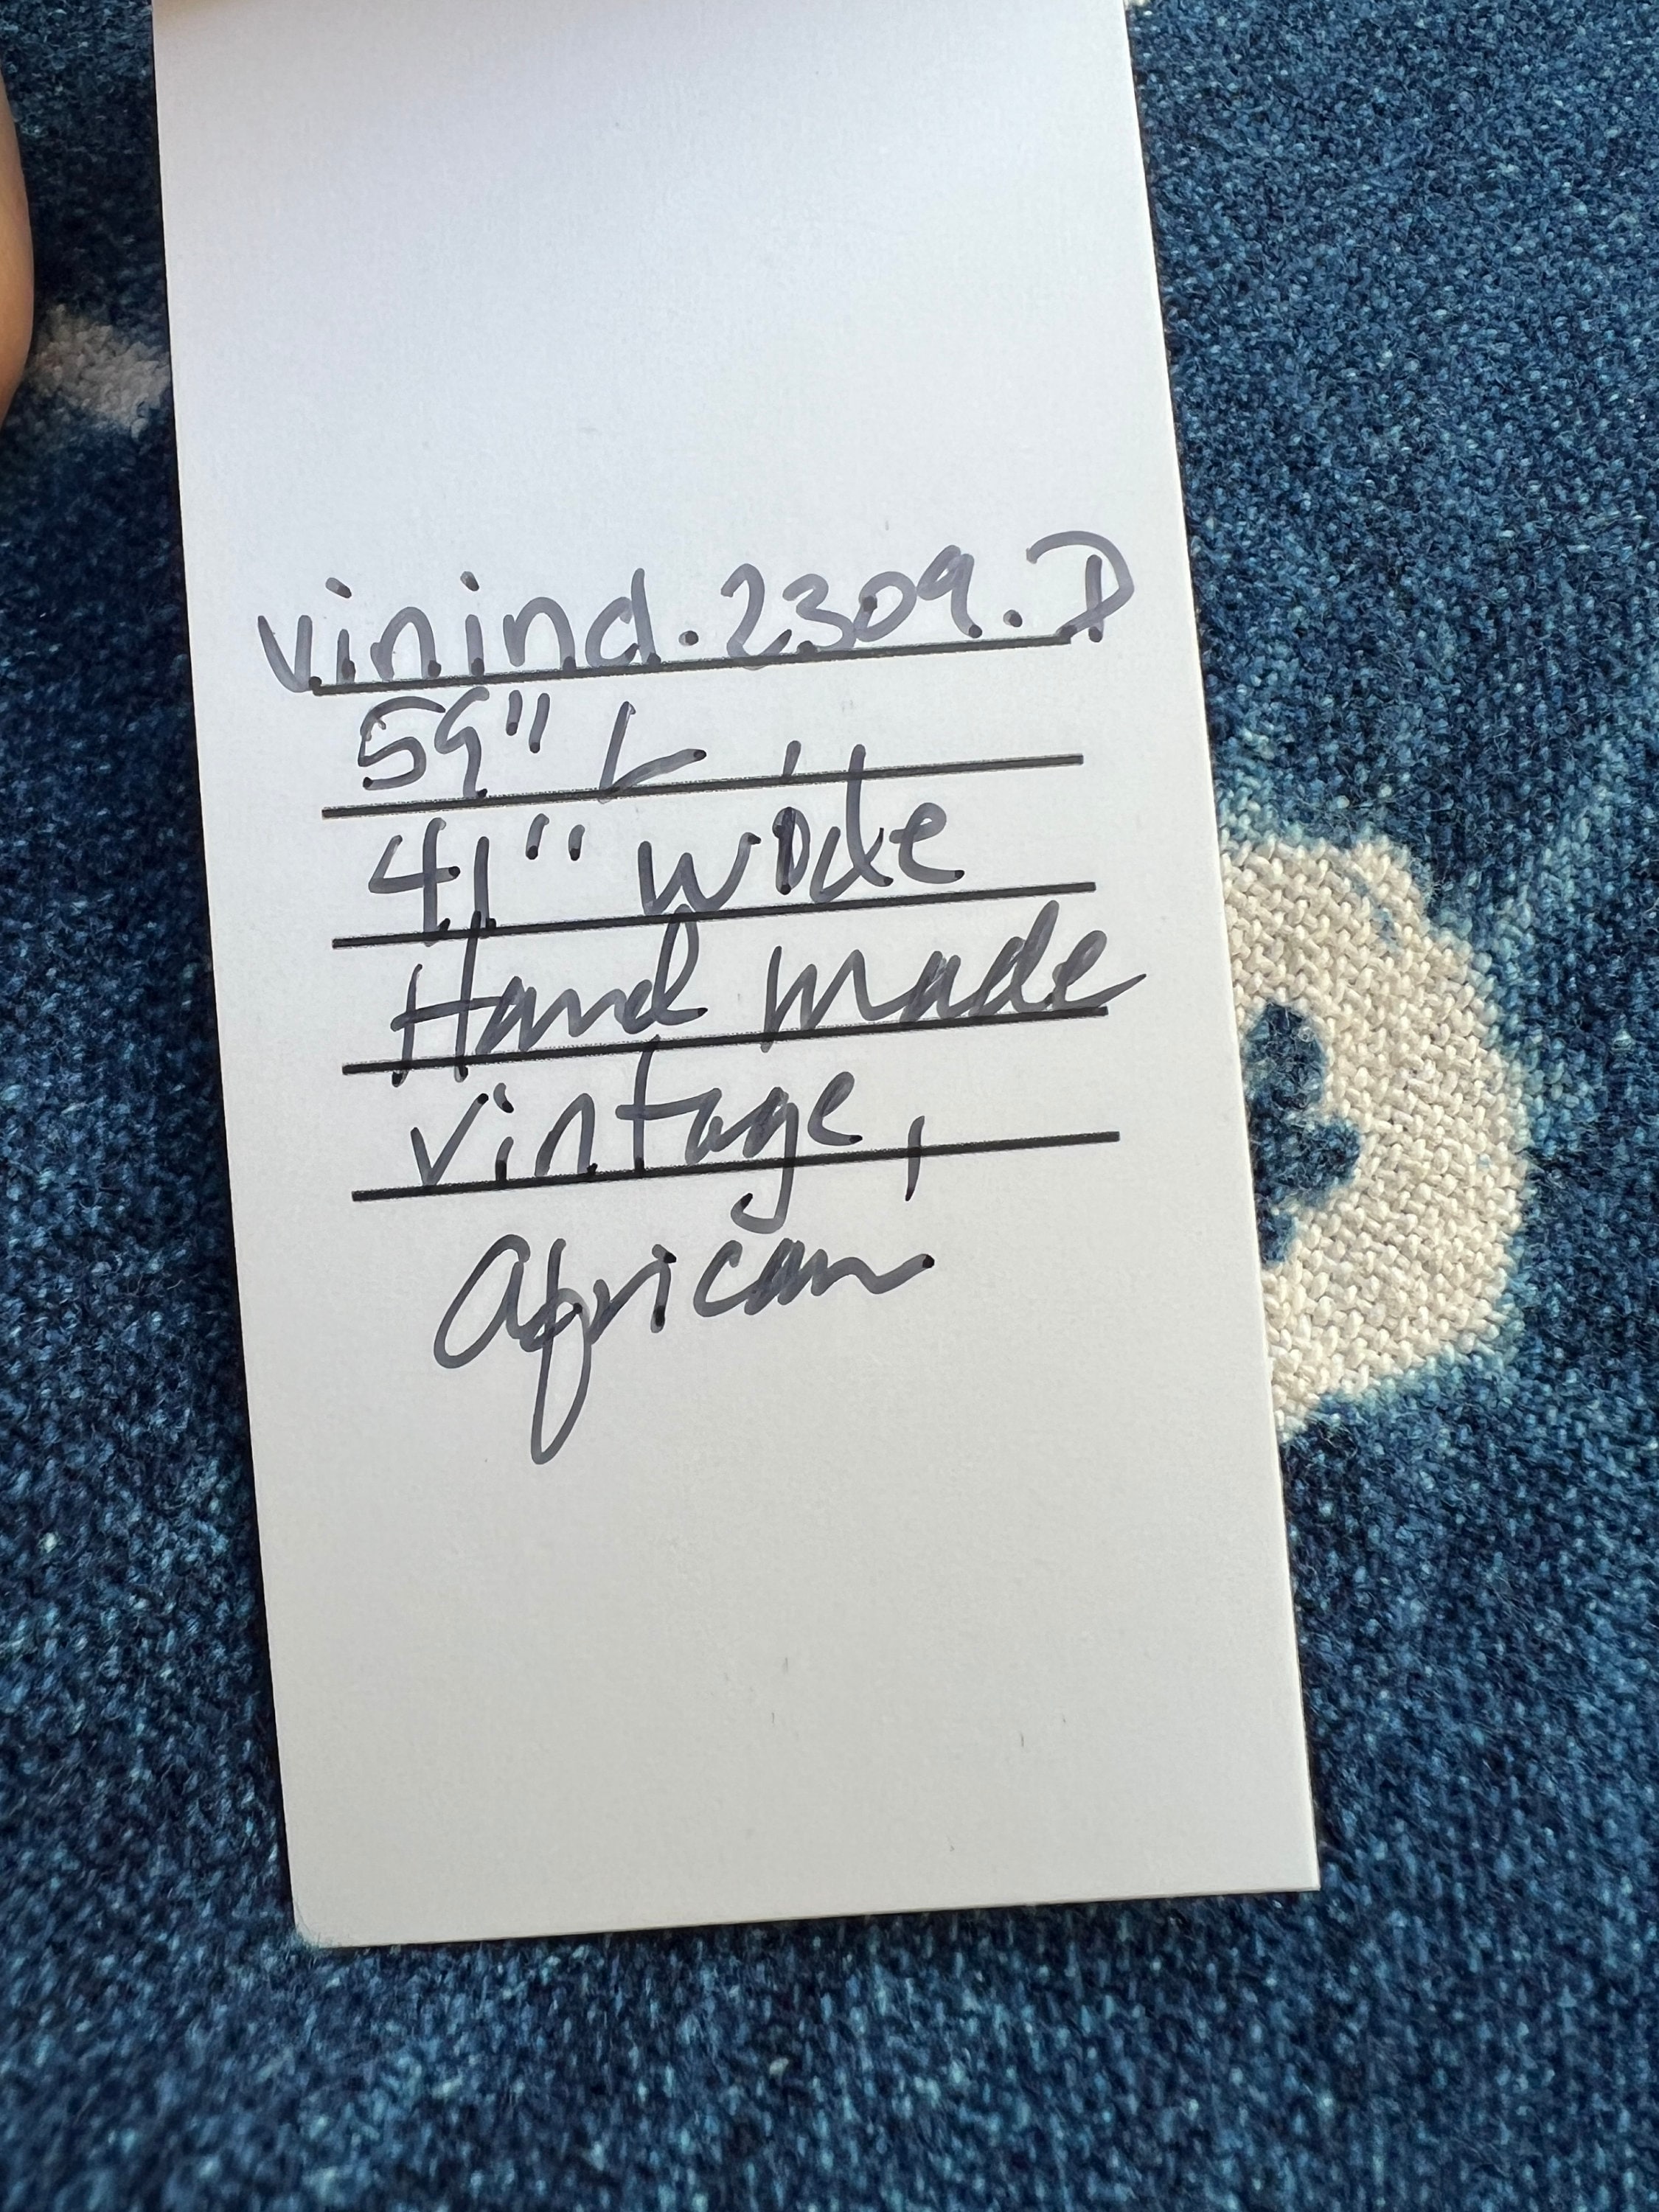 vinind.2309.D
59" L
41" wide
Hand made
vintage,
african